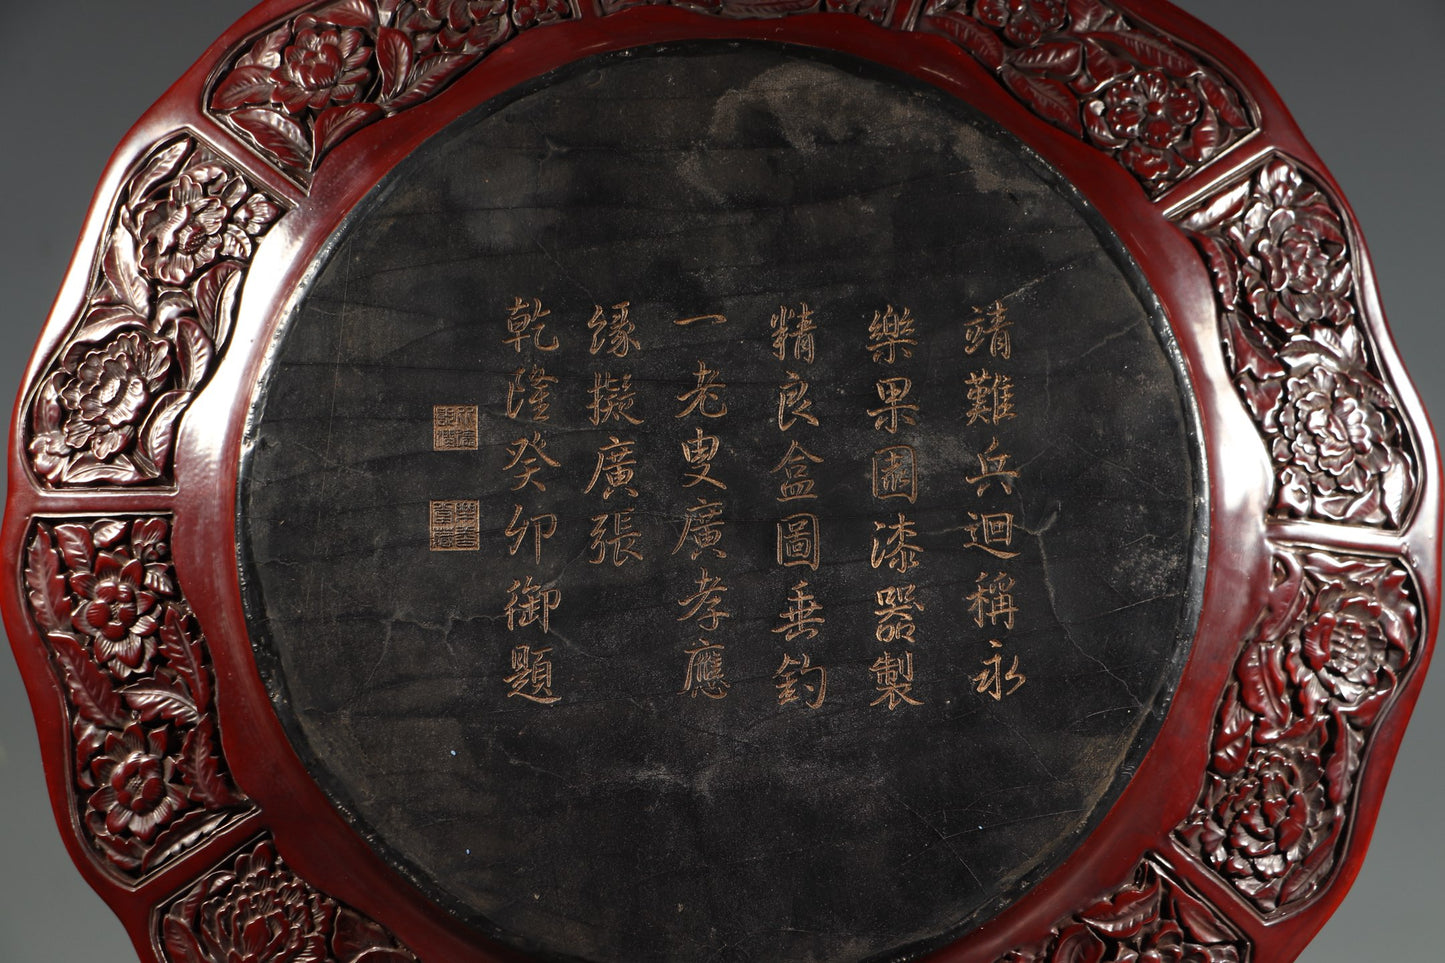 靖難兵迴稱永
樂果園漆器製
精良盒圖垂釣
一老叟廣孝應
緣擬廣張
乾隆癸卯御題